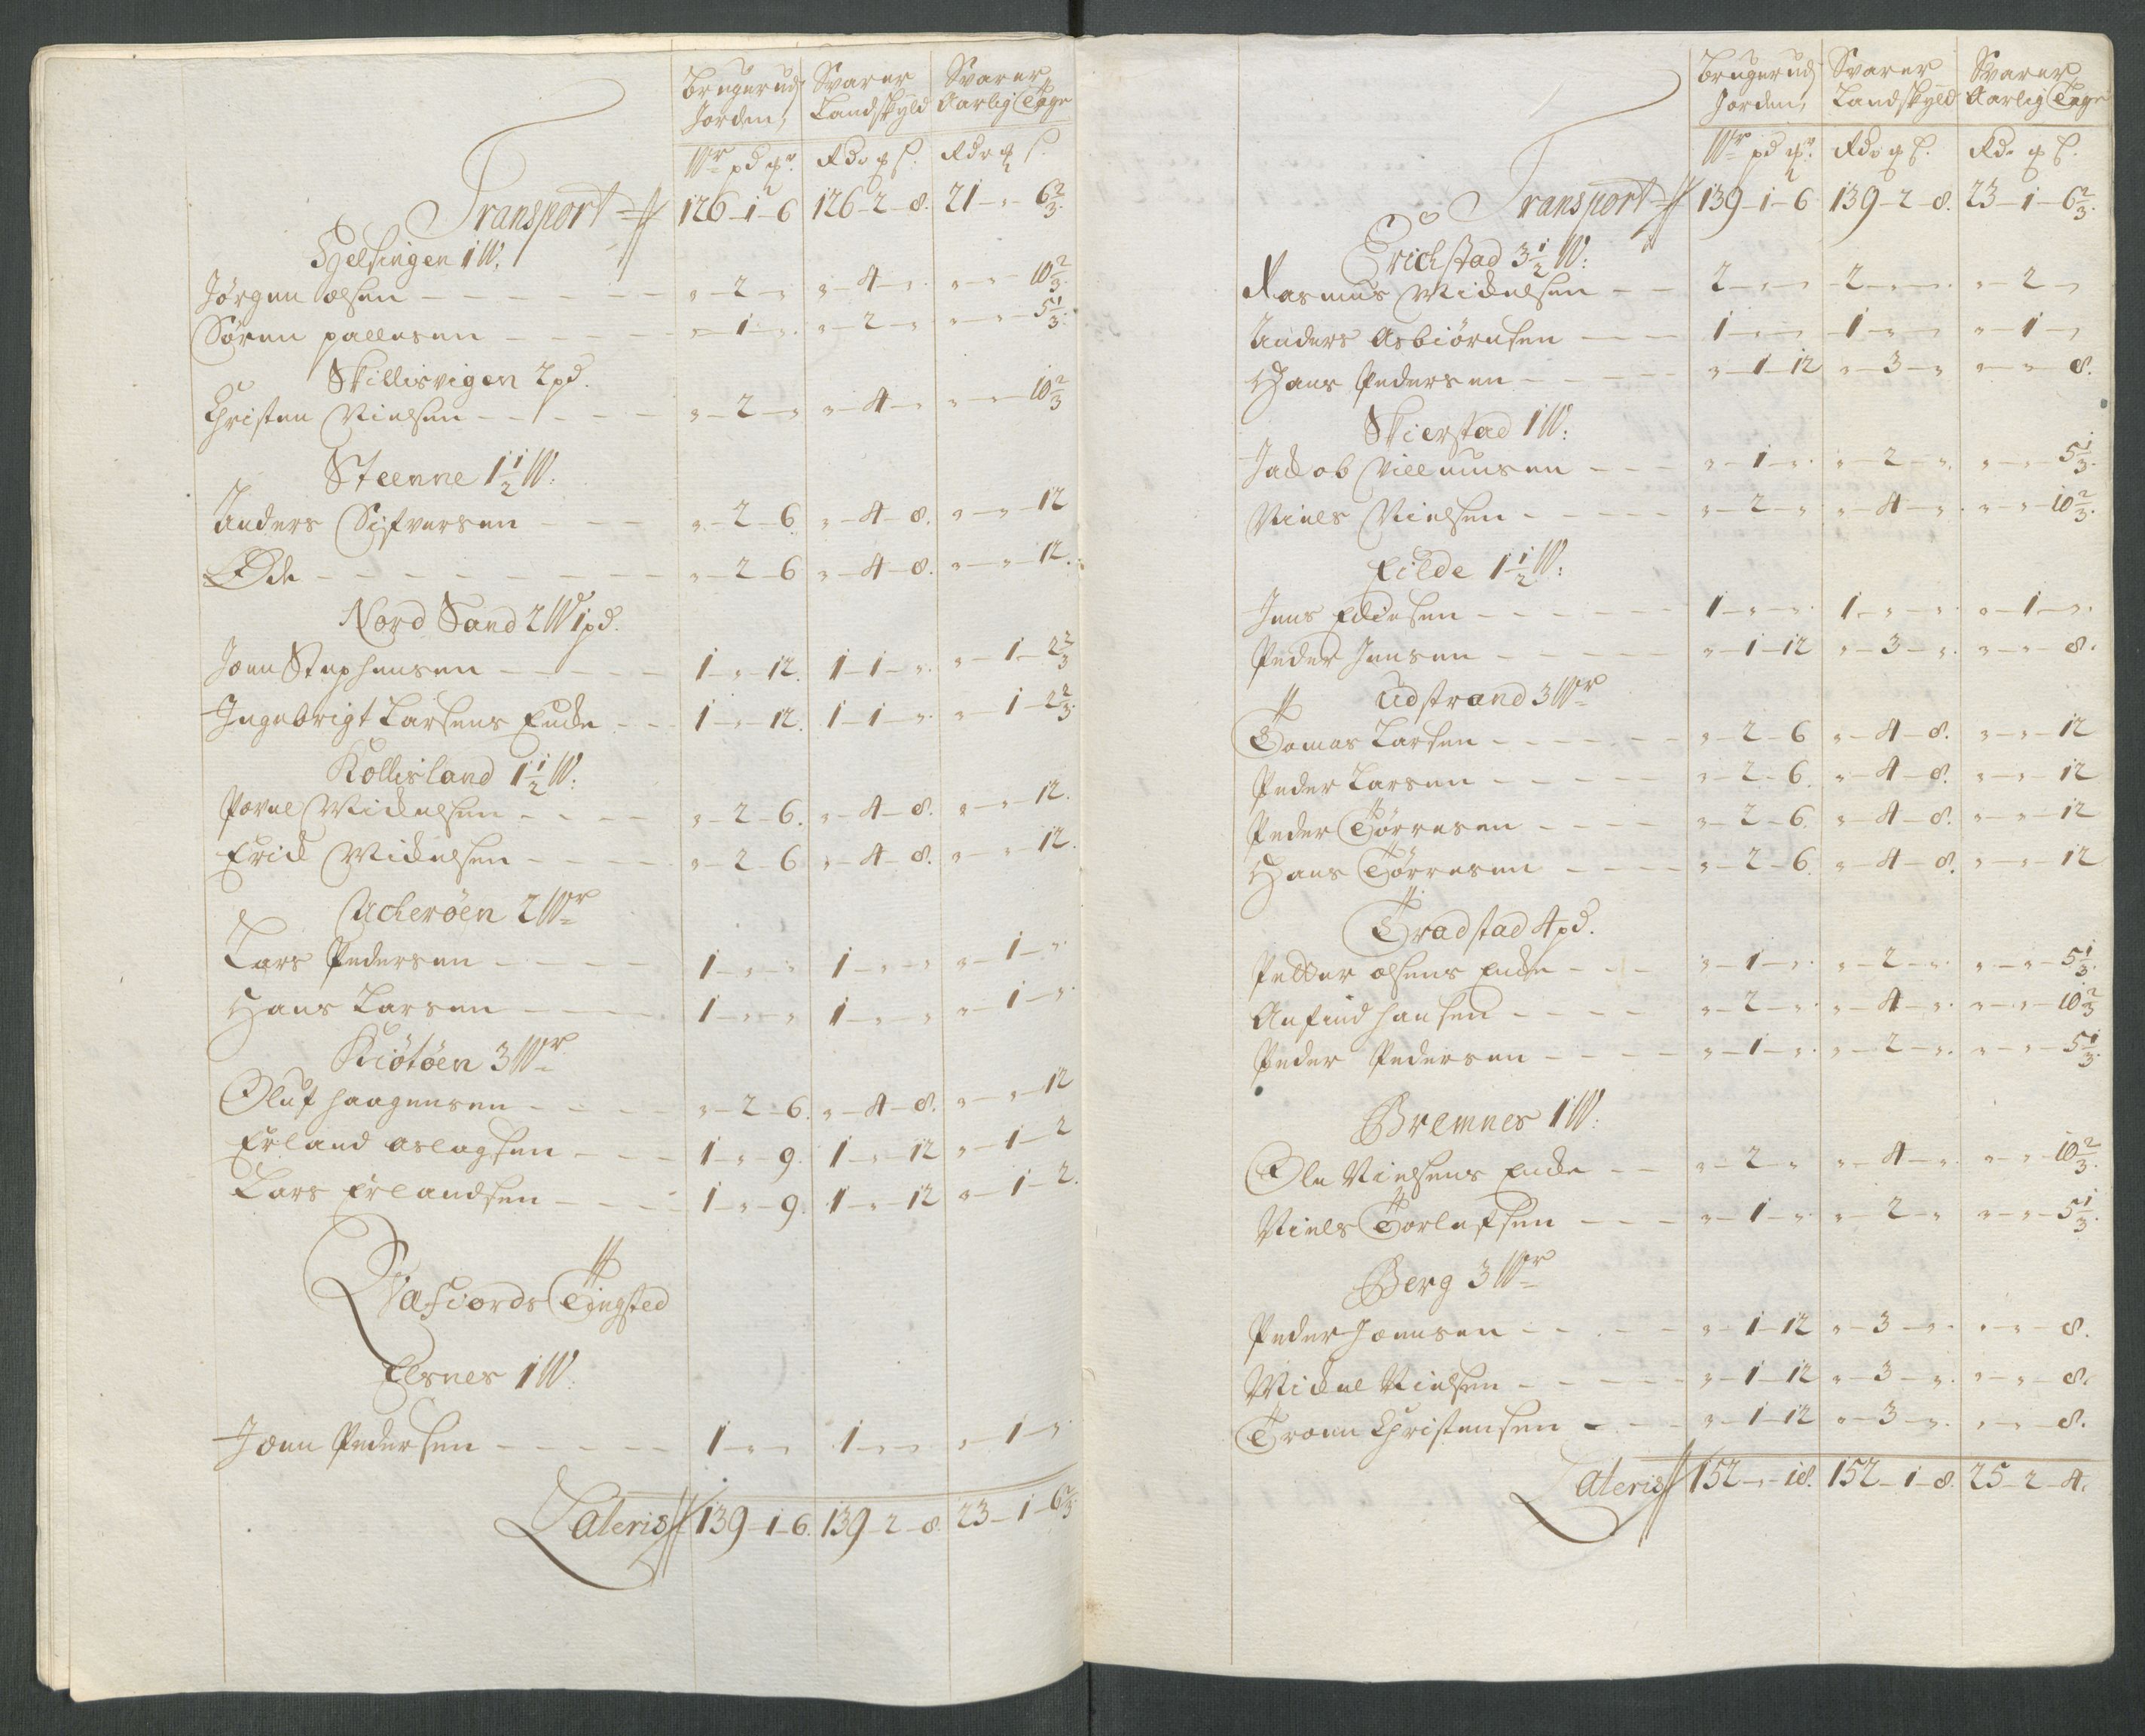 Bruger ud Jorden, Svarer Landskyld Svarer Aarlig Tage
W pd mr. Rd. q ſ. Rd. q ſ.
Transport 126-1-6 126-2-8. 21-"-6 2/3.
Hellsingen 1 W.
Jørgen olsen "-2-" "-4-". "-"-10 2/3.
Søren pallesen "-1-". "-2-" "-"-5 1/3.
Skillisvigen 2 pd.
Christen Nielsen "-2-" "-4-" "-"-10 2/3
Steenne 1 1/2 W.
Anders Sifversen "-2-6 "-4-8. "-"-12
Øde "-2-6 "-4-8. "-"-12.
Nord Sand 2 W 1 pd.
Joen Stephensen 1-"-12. 1-1-". "-1-2 2/3
Ingebrigt Larsens Encke 1-"-12. 1-1-". "-1-2 2/3.
Kollisland 1 1/2 W.
Povel Michelsen "-2-6. "-4-8. "-"-12.
Erick Michelsen "-2-6 "-4-8. "-"-12.
Acherøen 2 Wr
Lars Pedersen 1-"-" 1-"-" "-1-"
Hans Larsen 1-"-" 1-"-" "-1-"
Kiøtøen 3 Wr
Oluf haagensen "-2-6. "-4-8. "-"-12
Erland aslagsen 1-"-9. 1-"-12 "-1-2
Lars Erlandsen 1-"-9. 1-"-12 "-1-2.
Qvæfiords Tingsted
Elsnes 1 W.
Joen Pedersen 1-"-" 1-"-" "-1-"
Lateris 139-1-6. 139-2-8. 23-1-6 2/3.
Bruger ud Jorden, Svarer Landskyld Svarer Aarlig Tage
Wr pd mr. Rd. q ſ. Rd. q ſ.
Transport 139-1-6 139-2-8. 23-1-6 2/3.
Erichstad 3 1/2 W.
Rasmus Michelsen 2-"-" 2-"-". "-2-"
Anders Asbiørnsen 1-"-" 1-"-" "-1-"
Hans Pedersen "-1-12 "-3-" "-"-8.
Skierstad 1 W.
Jackob Villumsen "-1-". "-2-". "-"-5 1/3.
Niels Nielsen "-2-" "-4-". "-"-10 2/3.
Eilde 1 1/2 W.
Jens Ellesen 1-"-". 1-"-". "-1-".
Peder Jensen "-1-12 "-3-". "-"-8.
Udstrand 3 Wr
Tomas Larsen "-2-6 "-4-8. "-"-12
Peder Larsen "-2-6. "-4-8. "-"-12
Peder Tørresen "-2-6. "-4-8. "-"-12
Hans Tørresen "-2-6. "-4-8. "-"-12
Tradstad 4 pd.
Petter olsens Encke "-1-". "-2-". "-"-5 1/3.
Anfind hansen "-2-". "-4-". "-"-10 2/3
Peder Pedersen "-1-". "-2-". "-"-5 1/3.
Bremnes 1 W.
Ole Nielsens Encke "-2-" "-4-". "-"-10 2/3.
Niels Torlefsen "-1-". "-2-" "-"-5 1/3.
Berg 3 Wr
Peder Joensen "-1-12 "-3-". "-"-8.
Mickel Nielsen "-1-12 "-3-". "-"-8.
Troen Christensen "-1-12 "-3-". "-"-8.
Lateris 152-"-18. 152-1-8. 25-2-4.